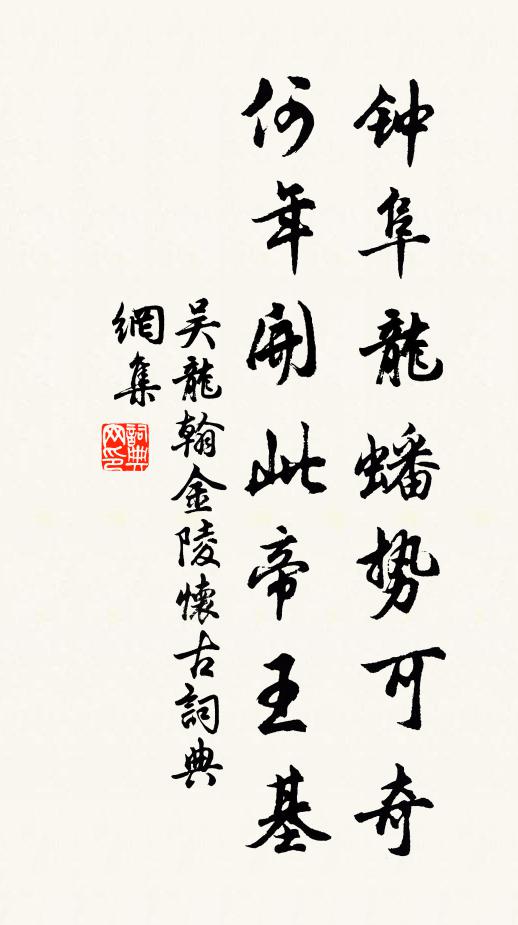 钟阜龍蟠势可奇
何年開此帝王基
吴龍翰金陵懷古詞典
網集
詞典網印